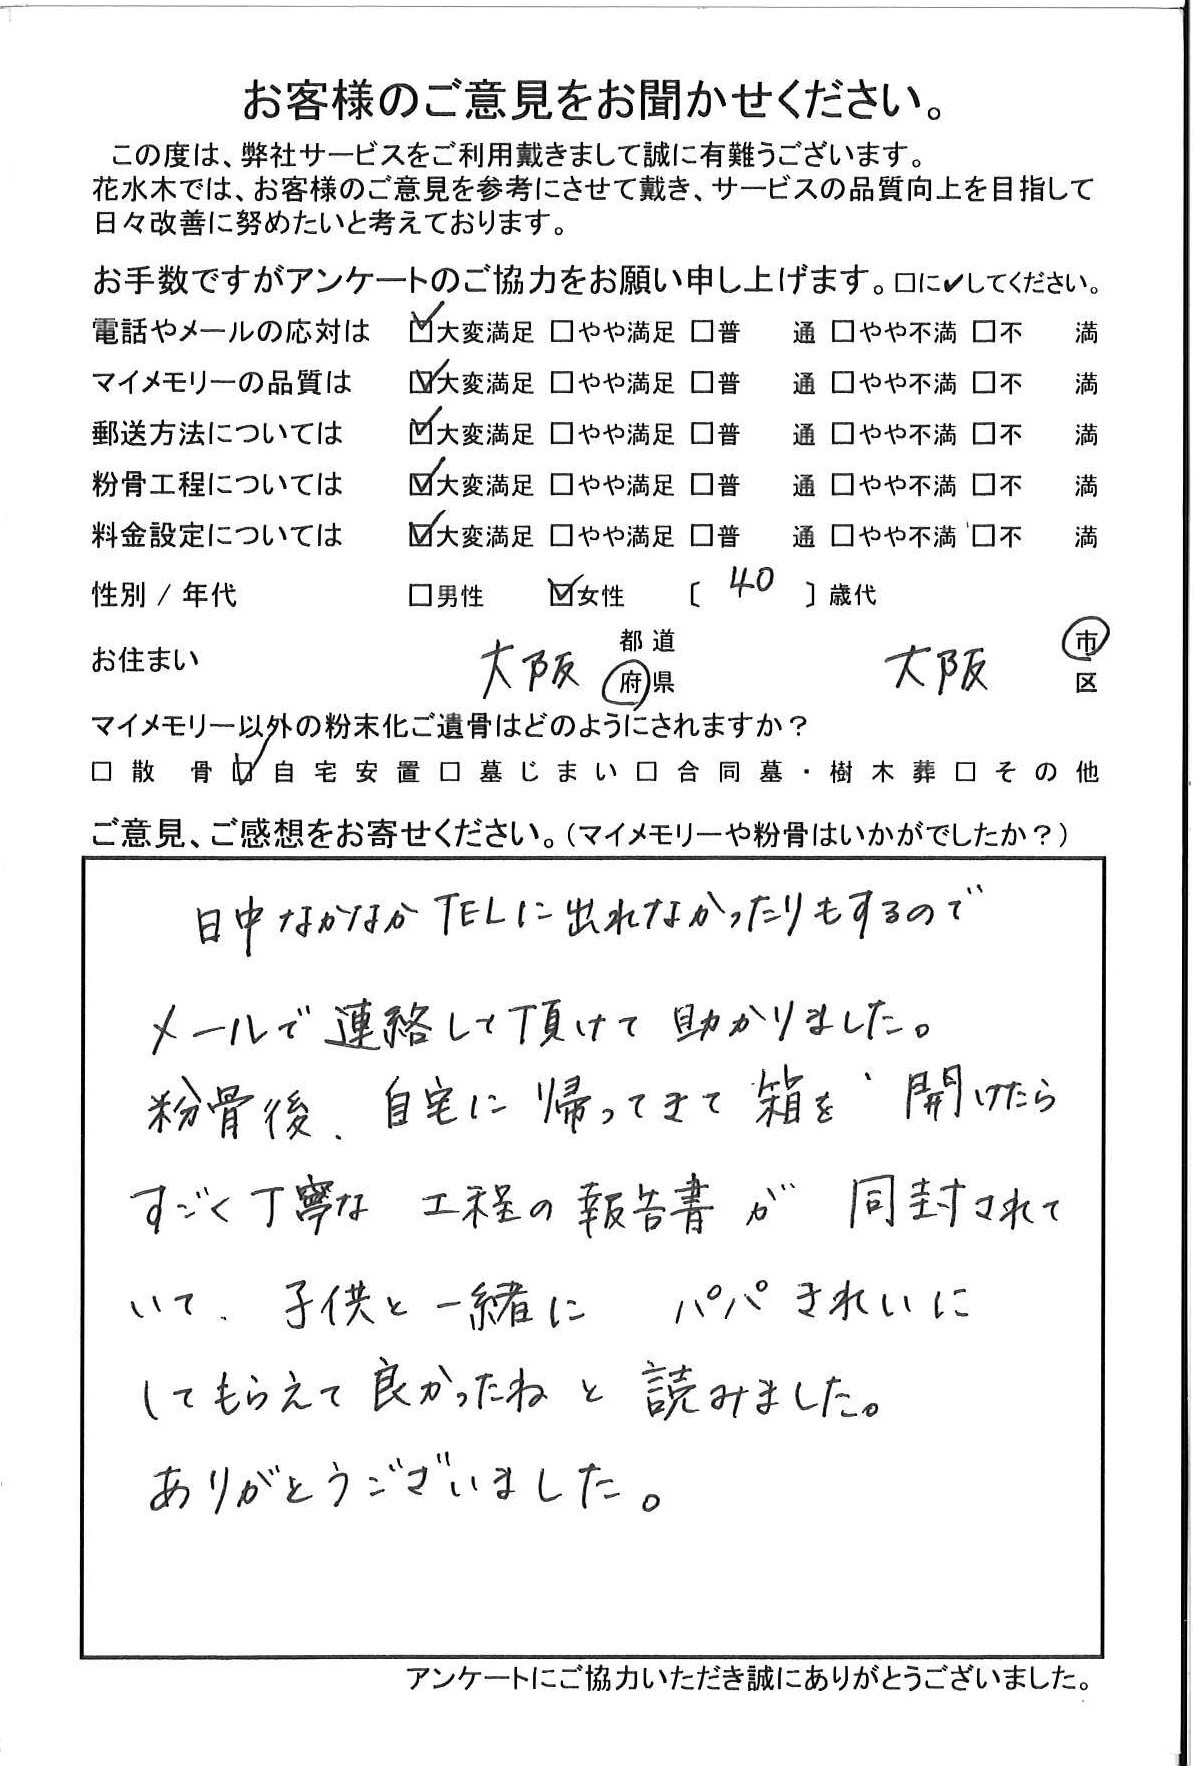 お客様のご意見をお聞かせください。
この度は、弊社サービスをご利用戴きまして誠に有難うございます。
花水木では、お客様のご意見を参考にさせて戴き、サービスの品質向上を目指して
日々改善に努めたいと考えております。
お手数ですがアンケートのご協力をお願い申し上げます。□に✔してください。
電話やメールの応対は ☑大変満足 □やや満足 □普 通 □やや不満 □不 満
マイメモリーの品質は ☑大変満足 □やや満足 □普 通 □やや不満 □不 満
郵送方法については ☑大変満足 □やや満足 □普 通 □やや不満 □不 満
粉骨工程については ☑大変満足 □やや満足 □普 通 □やや不満 □不 満
料金設定については ☑大変満足 □やや満足 □普 通 □やや不満 □不 満
性別 / 年代 □男性 ☑女性 〔 40 〕歳代
お住まい 大阪 都道府県 大阪 市区
マイメモリー以外の粉末化ご遺骨はどのようにされますか?
□散 骨 ☑自宅安置 □墓じまい □合同墓・樹木葬 □その他
ご意見、ご感想をお寄せください。(マイメモリーや粉骨はいかがでしたか?)
日中なかなかTELに出れなかったりもするので
メールで連絡して頂けて助かりました。
粉骨後、自宅に帰ってきて箱を開けたら
すごく丁寧な工程の報告書が同封されて
いて、子供と一緒に パパきれいに
してもらえて良かったねと読みました。
ありがとうございました。
アンケートにご協力いただき誠にありがとうございました。